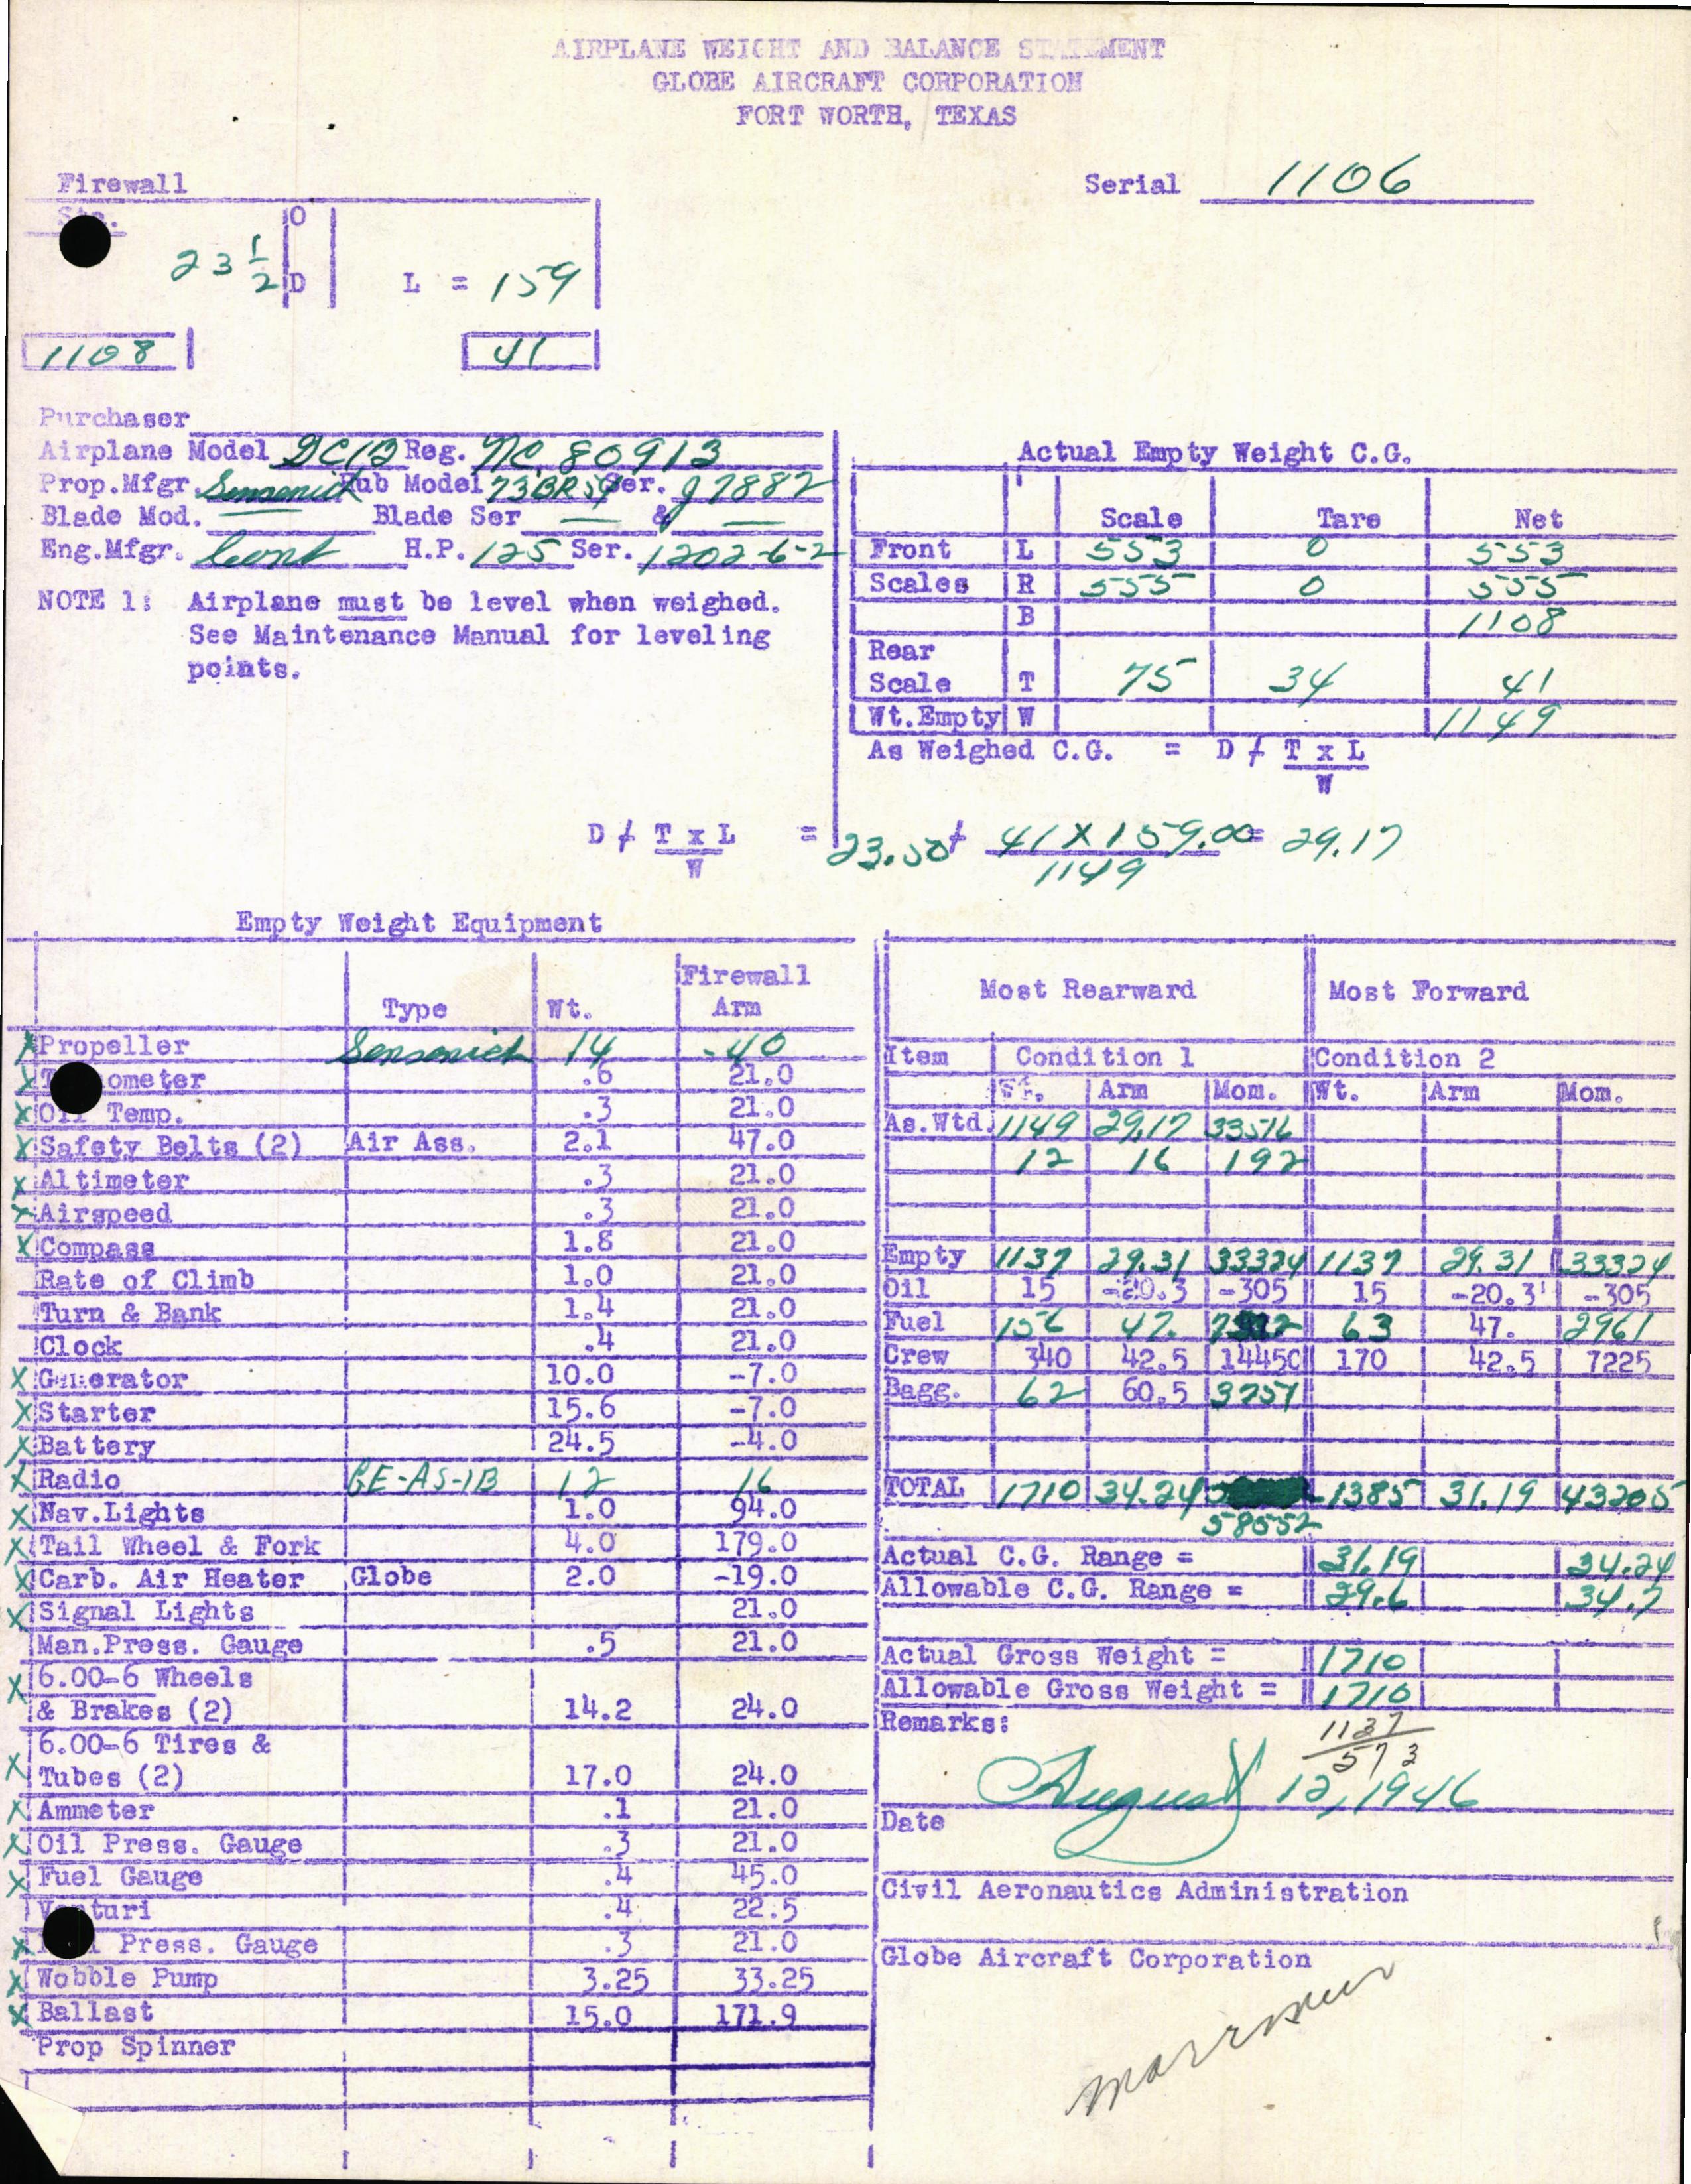 AIRPLANE WEIGHT AND BALANCE STATEMENT
GLOBE AIRCRAFT CORPORATION
FORT WORTH, TEXAS
Serial 1106
Firewall
Sta.
O
23 1/2 D L = 159
1108 41
Purchaser
Airplane Model GC1B Reg. NC 80913
Prop.Mfgr. Sensenich Hub Model 73BR54 Ser. 97882
Blade Mod. — Blade Ser — & —
Eng.Mfgr. Cont H.P. 125 Ser. 1202-6-2
NOTE 1: Airplane must be level when weighed.
See Maintenance Manual for leveling
points.
Actual Empty Weight C.G.
Scale Tare Net
Front L 553 0 553
Scales R 555 0 555
B 1108
Rear
Scale T 75 34 41
Wt.Empty W 1149
As Weighed C.G. = D + T x L
W
D + T x L = 23.50 + 41 X 159.00 = 29.17
W 1149
Empty Weight Equipment
Type Wt. Firewall Arm
X Propeller Sensenich 14 -40
X ometer .6 21.0
X Oil Temp. .3 21.0
X Safety Belts (2) Air Ass. 2.1 47.0
X Altimeter .3 21.0
X Airspeed .3 21.0
X Compass 1.8 21.0
Rate of Climb 1.0 21.0
Turn & Bank 1.4 21.0
Clock .4 21.0
X Generator 10.0 -7.0
X Starter 15.6 -7.0
X Battery 24.5 -4.0
X Radio GE-AS-1B 12 16
X Nav.Lights 1.0 94.0
X Tail Wheel & Fork 4.0 179.0
X Carb. Air Heater Globe 2.0 -19.0
X Signal Lights 21.0
Man.Press. Gauge .5 21.0
X 6.00-6 Wheels
& Brakes (2) 14.2 24.0
X 6.00-6 Tires &
Tubes (2) 17.0 24.0
X Ammeter .1 21.0
X Oil Press. Gauge .3 21.0
X Fuel Gauge .4 45.0
Venturi .4 22.5
X Press. Gauge .3 21.0
X Wobble Pump 3.25 33.25
X Ballast 15.0 171.9
Prop Spinner
Most Rearward Most Forward
Item Condition 1 Condition 2
Wt. Arm Mom. Wt. Arm Mom.
As.Wtd. 1149 29.17 33516
12 16 192
Empty 1137 29.31 33324 1137 29.31 33324
Oil 15 -20.3 -305 15 -20.3 -305
Fuel 156 47. 63 47. 2961
Crew 340 42.5 14450 170 42.5 7225
Bagg. 62 60.5 3751
TOTAL 1710 34.24 1385 31.19 43205
58552
Actual C.G. Range = 31.19 34.24
Allowable C.G. Range = 29.6 34.7
Actual Gross Weight = 1710
Allowable Gross Weight = 1710
Remarks: 1137
573
August 12, 1946
Date
Civil Aeronautics Administration
Globe Aircraft Corporation